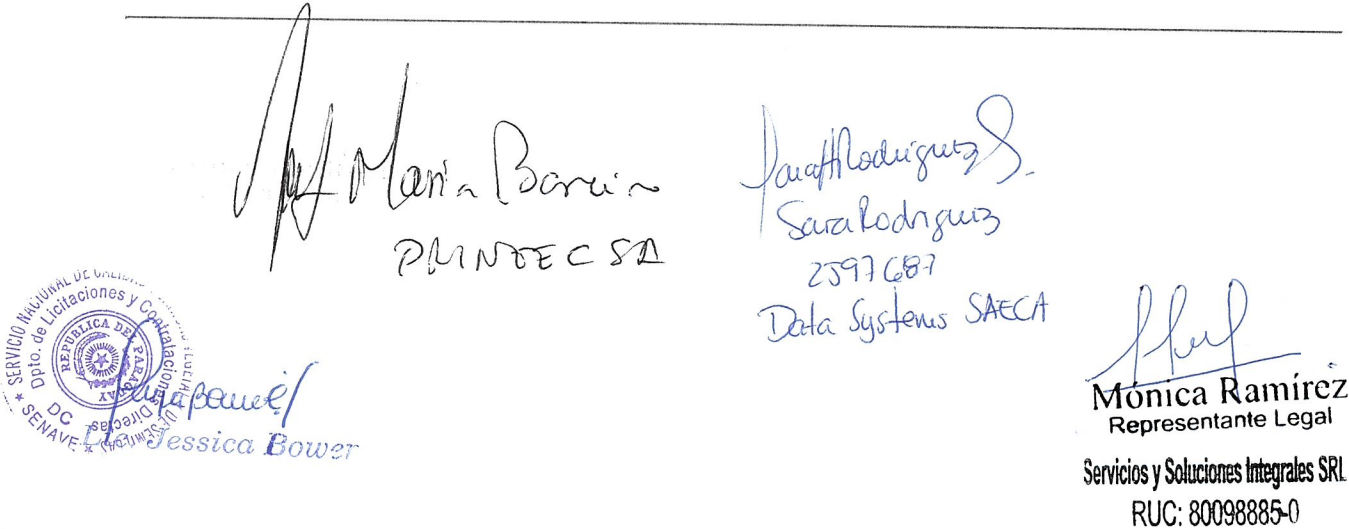 Maria Barcia
PRINTEC SA
Sara Rodriguez S.
Sara Rodriguez
2597687
Data Systems SAECA
SERVICIO NACIONAL DE
Dpto. de Licitaciones y Contrataciones Directas
REPUBLICA DE PARAGUAY
DC
SENAVE
Lic. Jessica Bower
Mónica Ramírez
Representante Legal
Servicios y Soluciones Integrales SRL
RUC: 80098885-0